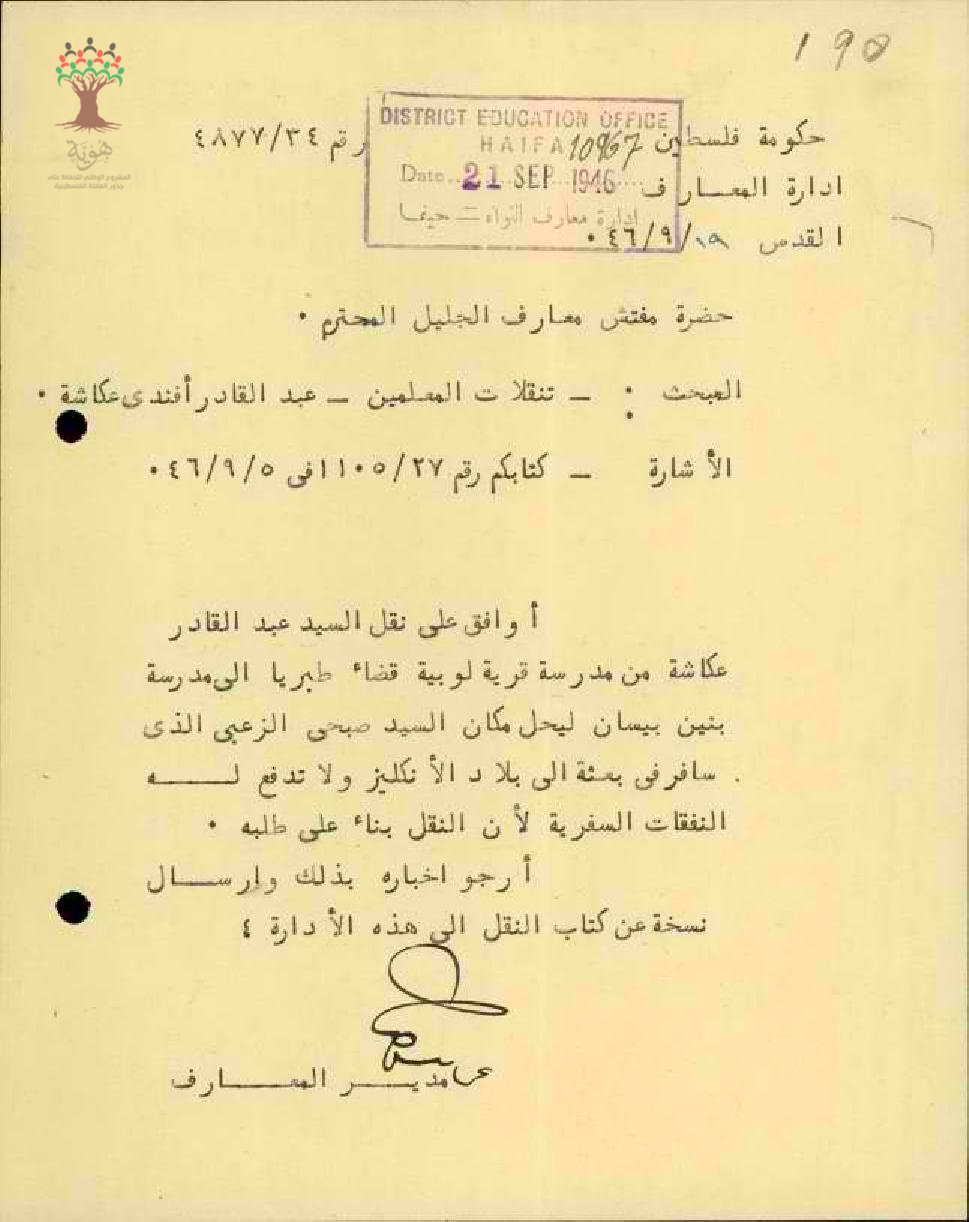 190
هوية
المشروع الوطني للحفاظ على
جذور العائلة الفلسطينية
DISTRICT EDUCATION OFFICE
HAIFA 10967
Date 21 SEP 1946
ادارة معارف اللواء – حيفا
حكومة فلسطين رقم ٤٨٧٧/٣٤
ادارة المعارف
القدس ١٩/٩/٤٦٠
حضرة مفتش معارف الجليل المحترم ٠
المبحث : – تنقلات المعلمين – عبد القادر أفندى عكاشة ٠
الأشارة – كتابكم رقم ١١٠٥/٢٧ فى ٤٦/٩/٥ ٠
أوافق على نقل السيد عبد القادر
عكاشة من مدرسة قرية لوبية قضاء طبريا الى مدرسة
بنين بيسان ليحل مكان السيد صبحى الزعبى الذى
سافر فى بعثة الى بلاد الأنكليز ولا تدفع لـــه
النفقات السفرية لأن النقل بناء على طلبه ٠
أرجو اخباره بذلك وارســال
نسخة عن كتاب النقل الى هذه الأدارة ٤
عن مديـــر المعـــارف